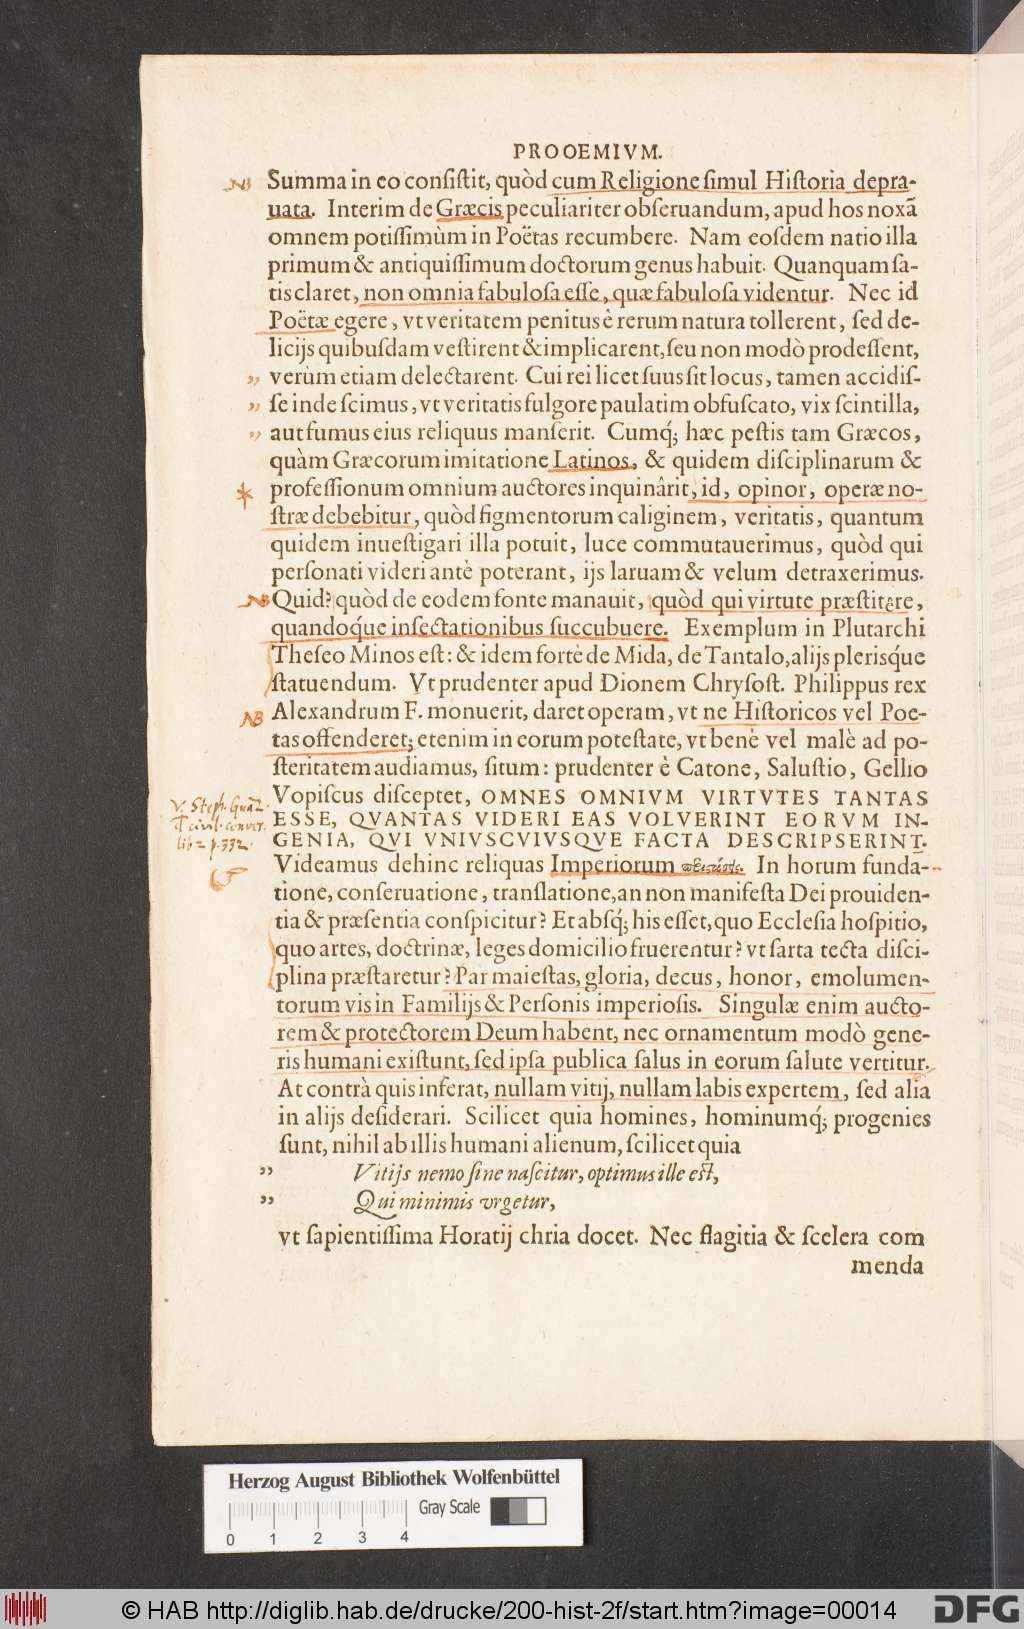 PROOEMIVM.
NB Summa in eo consistit, quòd cum Religione simul Historia depra-
uata. Interim de Græcis peculiariter obseruandum, apud hos noxã
omnem potissimùm in Poëtas recumbere. Nam eosdem natio illa
primum & antiquissimum doctorum genus habuit. Quanquam sa-
tis claret, non omnia fabulosa esse, quæ fabulosa videntur. Nec id
Poëtæ egere, vt veritatem penitus è rerum natura tollerent, sed de-
licijs quibusdam vestirent & implicarent, seu non modò prodessent,
„ verùm etiam delectarent. Cui rei licet suus sit locus, tamen accidis-
„ se inde scimus, vt veritatis fulgore paulatim obfuscato, vix scintilla,
„ aut fumus eius reliquus manserit. Cumq́; hæc pestis tam Græcos,
quàm Græcorum imitatione Latinos, & quidem disciplinarum &
* professionum omnium auctores inquinârit, id, opinor, operæ no-
stræ debebitur, quòd figmentorum caliginem, veritatis, quantum
quidem inuestigari illa potuit, luce commutauerimus, quòd qui
personati videri antè poterant, ijs laruam & velum detraxerimus.
NB Quid? quòd de eodem fonte manauit, quòd qui virtute præstitere,
quandoq́ue insectationibus succubuere. Exemplum in Plutarchi
Theseo Minos est: & idem fortè de Mida, de Tantalo, alijs plerisq́ue
statuendum. Vt prudenter apud Dionem Chrysost. Philippus rex
NB Alexandrum F. monuerit, daret operam, vt ne Historicos vel Poe-
tas offenderet; etenim in eorum potestate, vt benè vel malè ad po-
steritatem audiamus, situm: prudenter è Catone, Salustio, Gellio
Vopiscus disceptet, OMNES OMNIVM VIRTVTES TANTAS
ESSE, QVANTAS VIDERI EAS VOLVERINT EORVM IN-
GENIA, QVI VNIVSCVIVSQVE FACTA DESCRIPSERINT.
V. Steph. Guaz.
civil. conver.
lib 2 p. 332.
Videamus dehinc reliquas Imperiorum In horum funda-
tione, conseruatione, translatione, an non manifesta Dei prouiden-
tia & præsentia conspicitur? Et absq́; his esset, quo Ecclesia hospitio,
quo artes, doctrinæ, leges domicilio fruerentur? vt sarta tecta disci-
plina præstaretur? Par maiestas, gloria, decus, honor, emolumen-
torum vis in Familijs & Personis imperiosis. Singulæ enim aucto-
rem & protectorem Deum habent, nec ornamentum modò gene-
ris humani existunt, sed ipsa publica salus in eorum salute vertitur.
At contrà quis inferat, nullam vitij, nullam labis expertem, sed alia
in alijs desiderari. Scilicet quia homines, hominumq́; progenies
sunt, nihil ab illis humani alienum, scilicet quia
„ Vitijs nemo sine nascitur, optimus ille est,
„ Qui minimis vrgetur,
vt sapientissima Horatij chria docet. Nec flagitia & scelera com
menda
Herzog August Bibliothek Wolfenbüttel
Gray Scale
0 1 2 3 4
© HAB http://diglib.hab.de/drucke/200-hist-2f/start.htm?image=00014
DFG